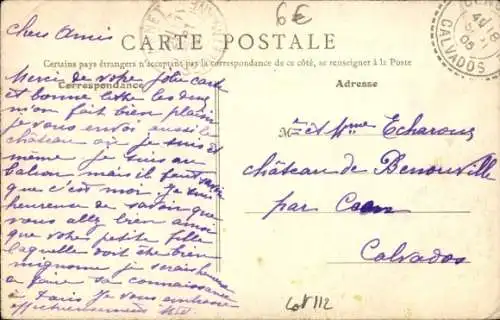 6€
CARTE POSTALE
Certains pays étrangers n'acceptent pas la correspondance de ce côté, se renseigner à la Poste
Correspondance
Adresse
CALVADOS
Chers Amis
Merci de votre jolie carte
et bonne lettre les deux
m'on fait bien plaisir
je vous envoi aussi le
château où je suis et
même je suis au
balcon mais il faut savoir
que c'est moi. Je suis
heureuse de savoir que
vous allez bien ainsi
que votre petite fille
laquelle doit être bien
mignonne je serais heureuse
a faire sa connaissance
à Paris Je vous embrasse
affectueusement
Mr et Mme Echaroux
château de Benouville
par Caen
Calvados